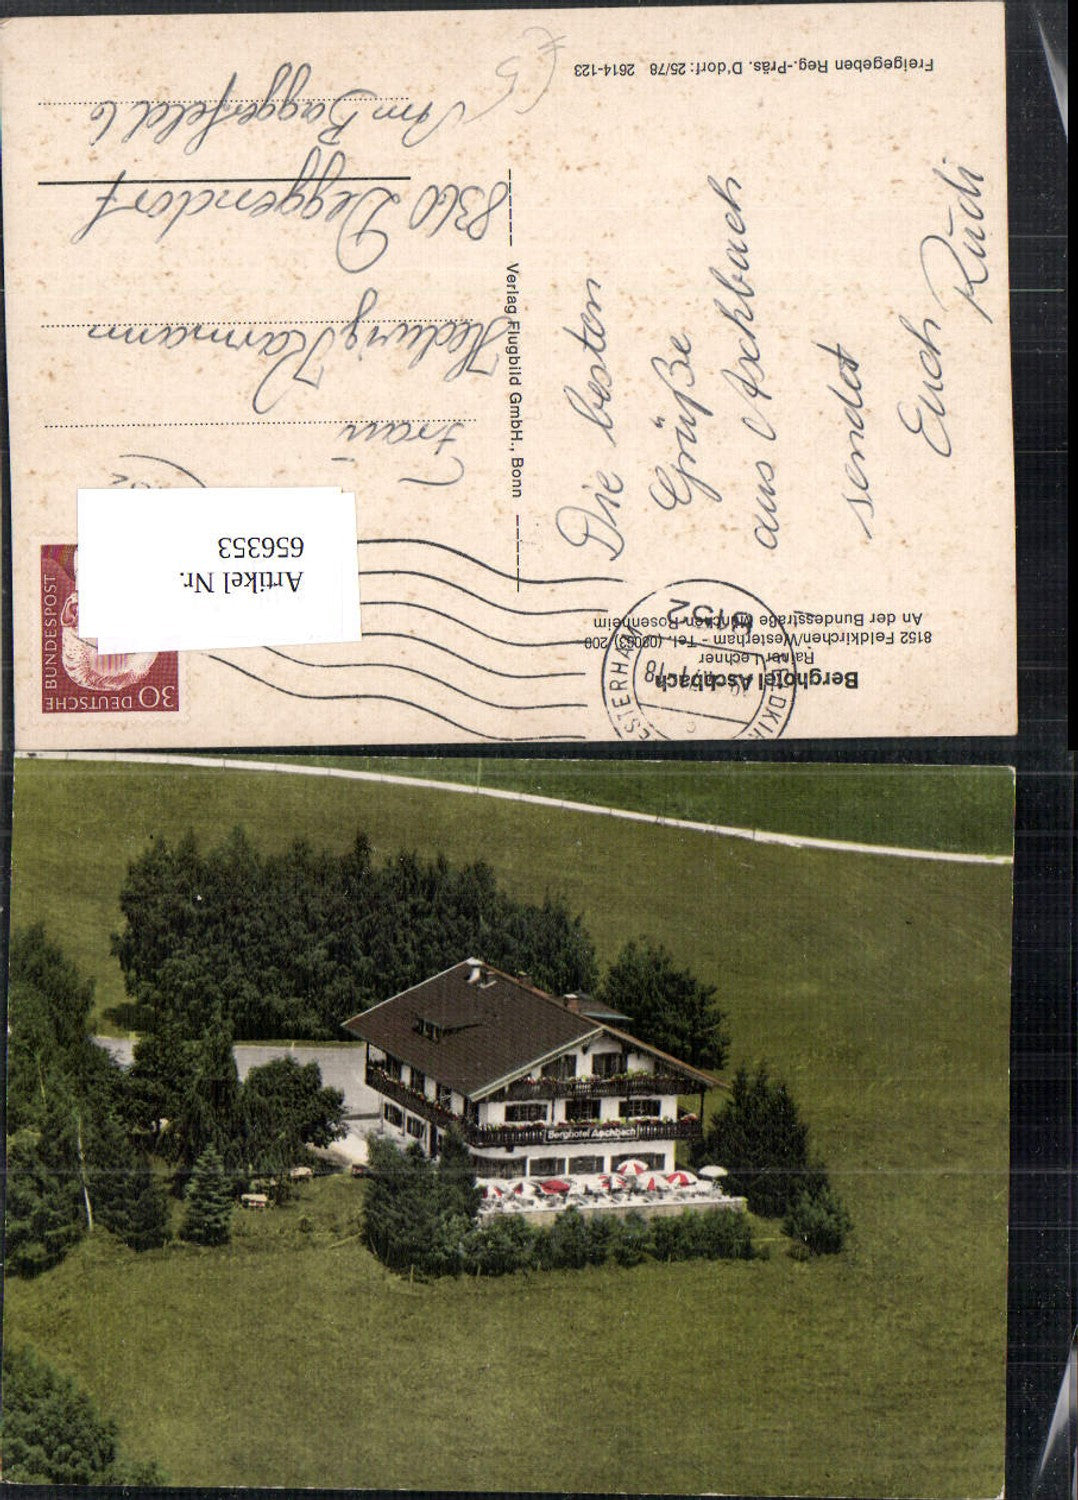 Berghotel Aschbach
Rainer Lechner
8152 Feldkirchen/Westerham - Tel. (08063) 200
An der Bundesstraße München-Rosenheim
8152
18
DEUTSCHE
BUNDESPOST
30
Artikel Nr.
656353
Die besten
Grüße
aus Aschbach
sendet
Euch
Rudi
Verlag Flugbild GmbH., Bonn
Frau
Hedwig
8360 Deggendorf
Am Baggerfeld 6
Freigegeben Reg.-Präs. D'dorf: 25/78 2614-123
Berghotel Aschbach